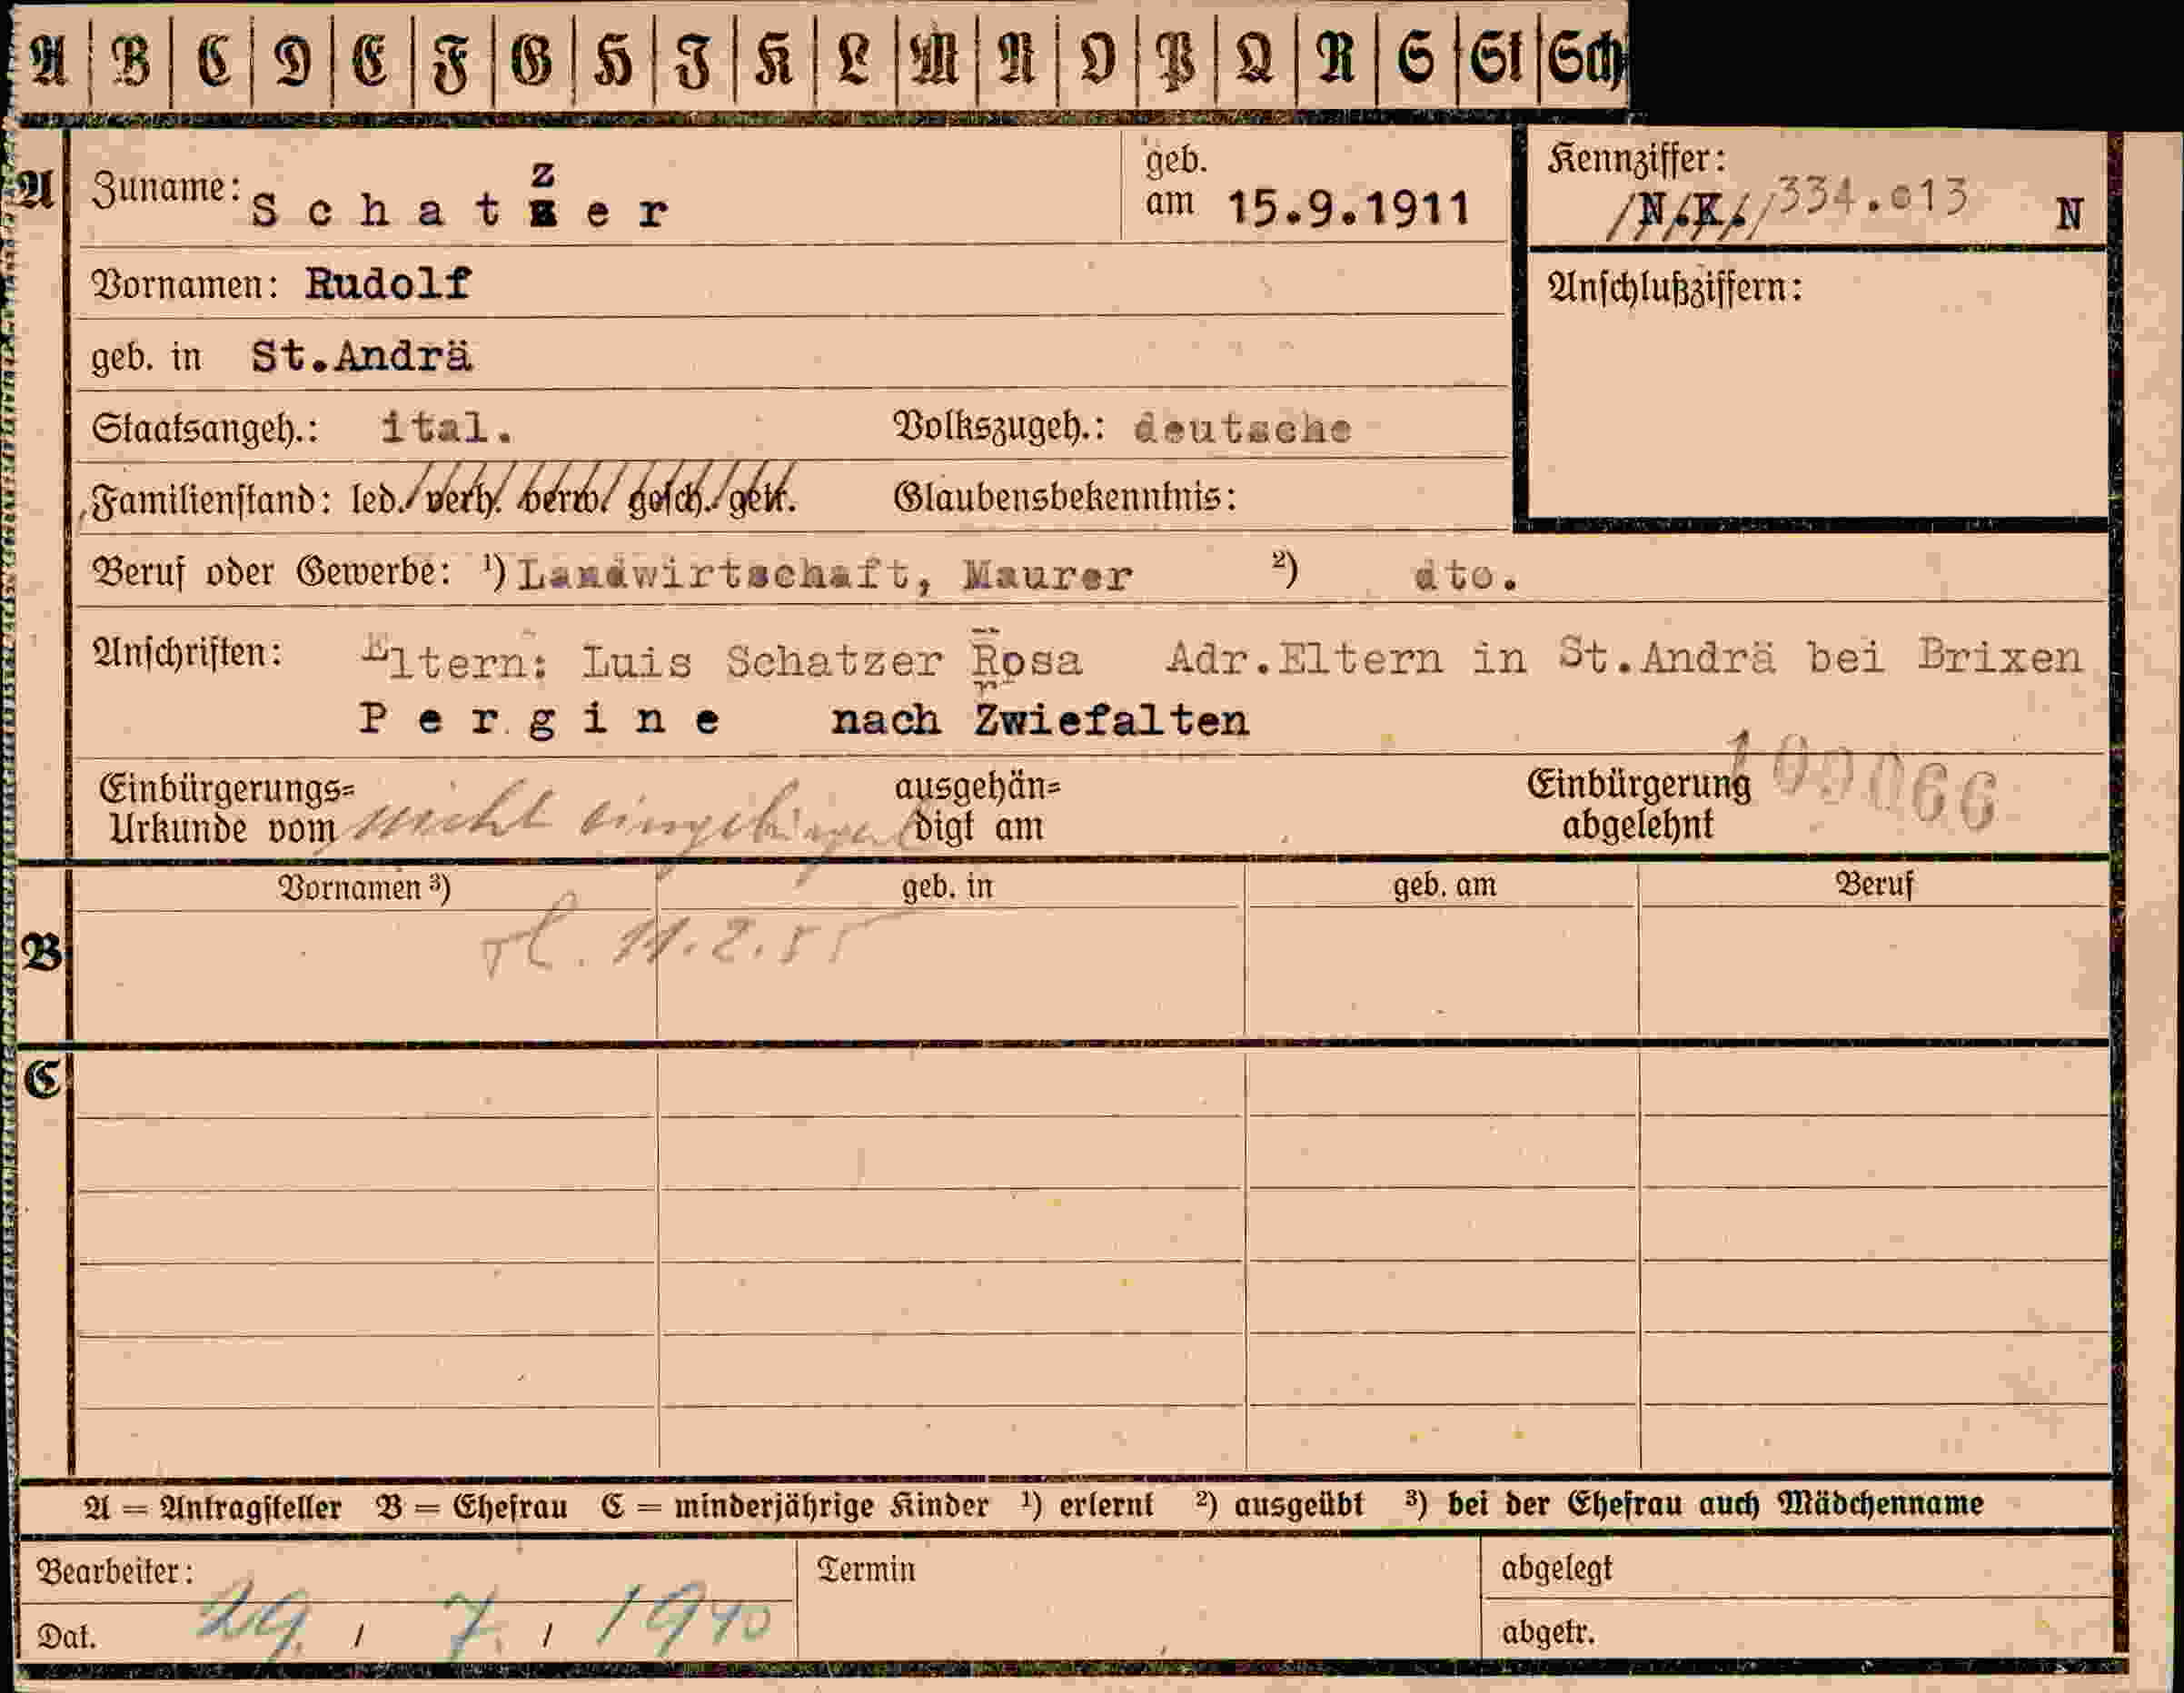 A B C D E F G H I K L M N O P Q R S St Sch
A Zuname: Schatzer geb. am 15.9.1911 Kennziffer: N.K. 334.013 N
z
Vornamen: Rudolf Anschlußziffern:
geb. in St.Andrä
Staatsangeh.: ital. Volkszugeh.: deutsche
Familienstand: led. verh. verw. gesch. getr. Glaubensbekenntnis:
Beruf oder Gewerbe: ¹) Landwirtschaft, Maurer ²) dto.
Anschriften: Eltern: Luis Schatzer Rosa Adr.Eltern in St.Andrä bei Brixen
Pergine nach Zwiefalten
Einbürgerungs= ausgehän= Einbürgerung 100066
Urkunde vom nicht eingebürgert digt am abgelehnt
Vornamen ³) geb. in geb. am Beruf
B
11.2.55
C
A = Antragsteller B = Ehefrau C = minderjährige Kinder ¹) erlernt ²) ausgeübt ³) bei der Ehefrau auch Mädchenname
Bearbeiter: Termin abgelegt
Dat. 29. / 7. / 1940 abgetr.